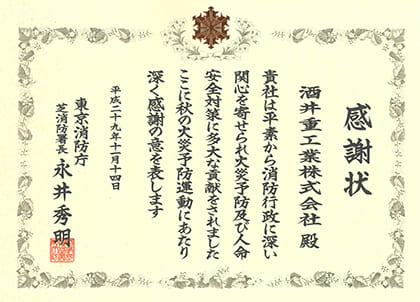 感謝状
酒井重工業株式会社 殿
貴社は平素から消防行政に深い
関心を寄せられ火災予防及び人命
安全対策に多大な貢献をされました
ここに秋の火災予防運動にあたり
深く感謝の意を表します
平成二十九年十一月十四日
東京消防庁
芝消防署長 永井秀明